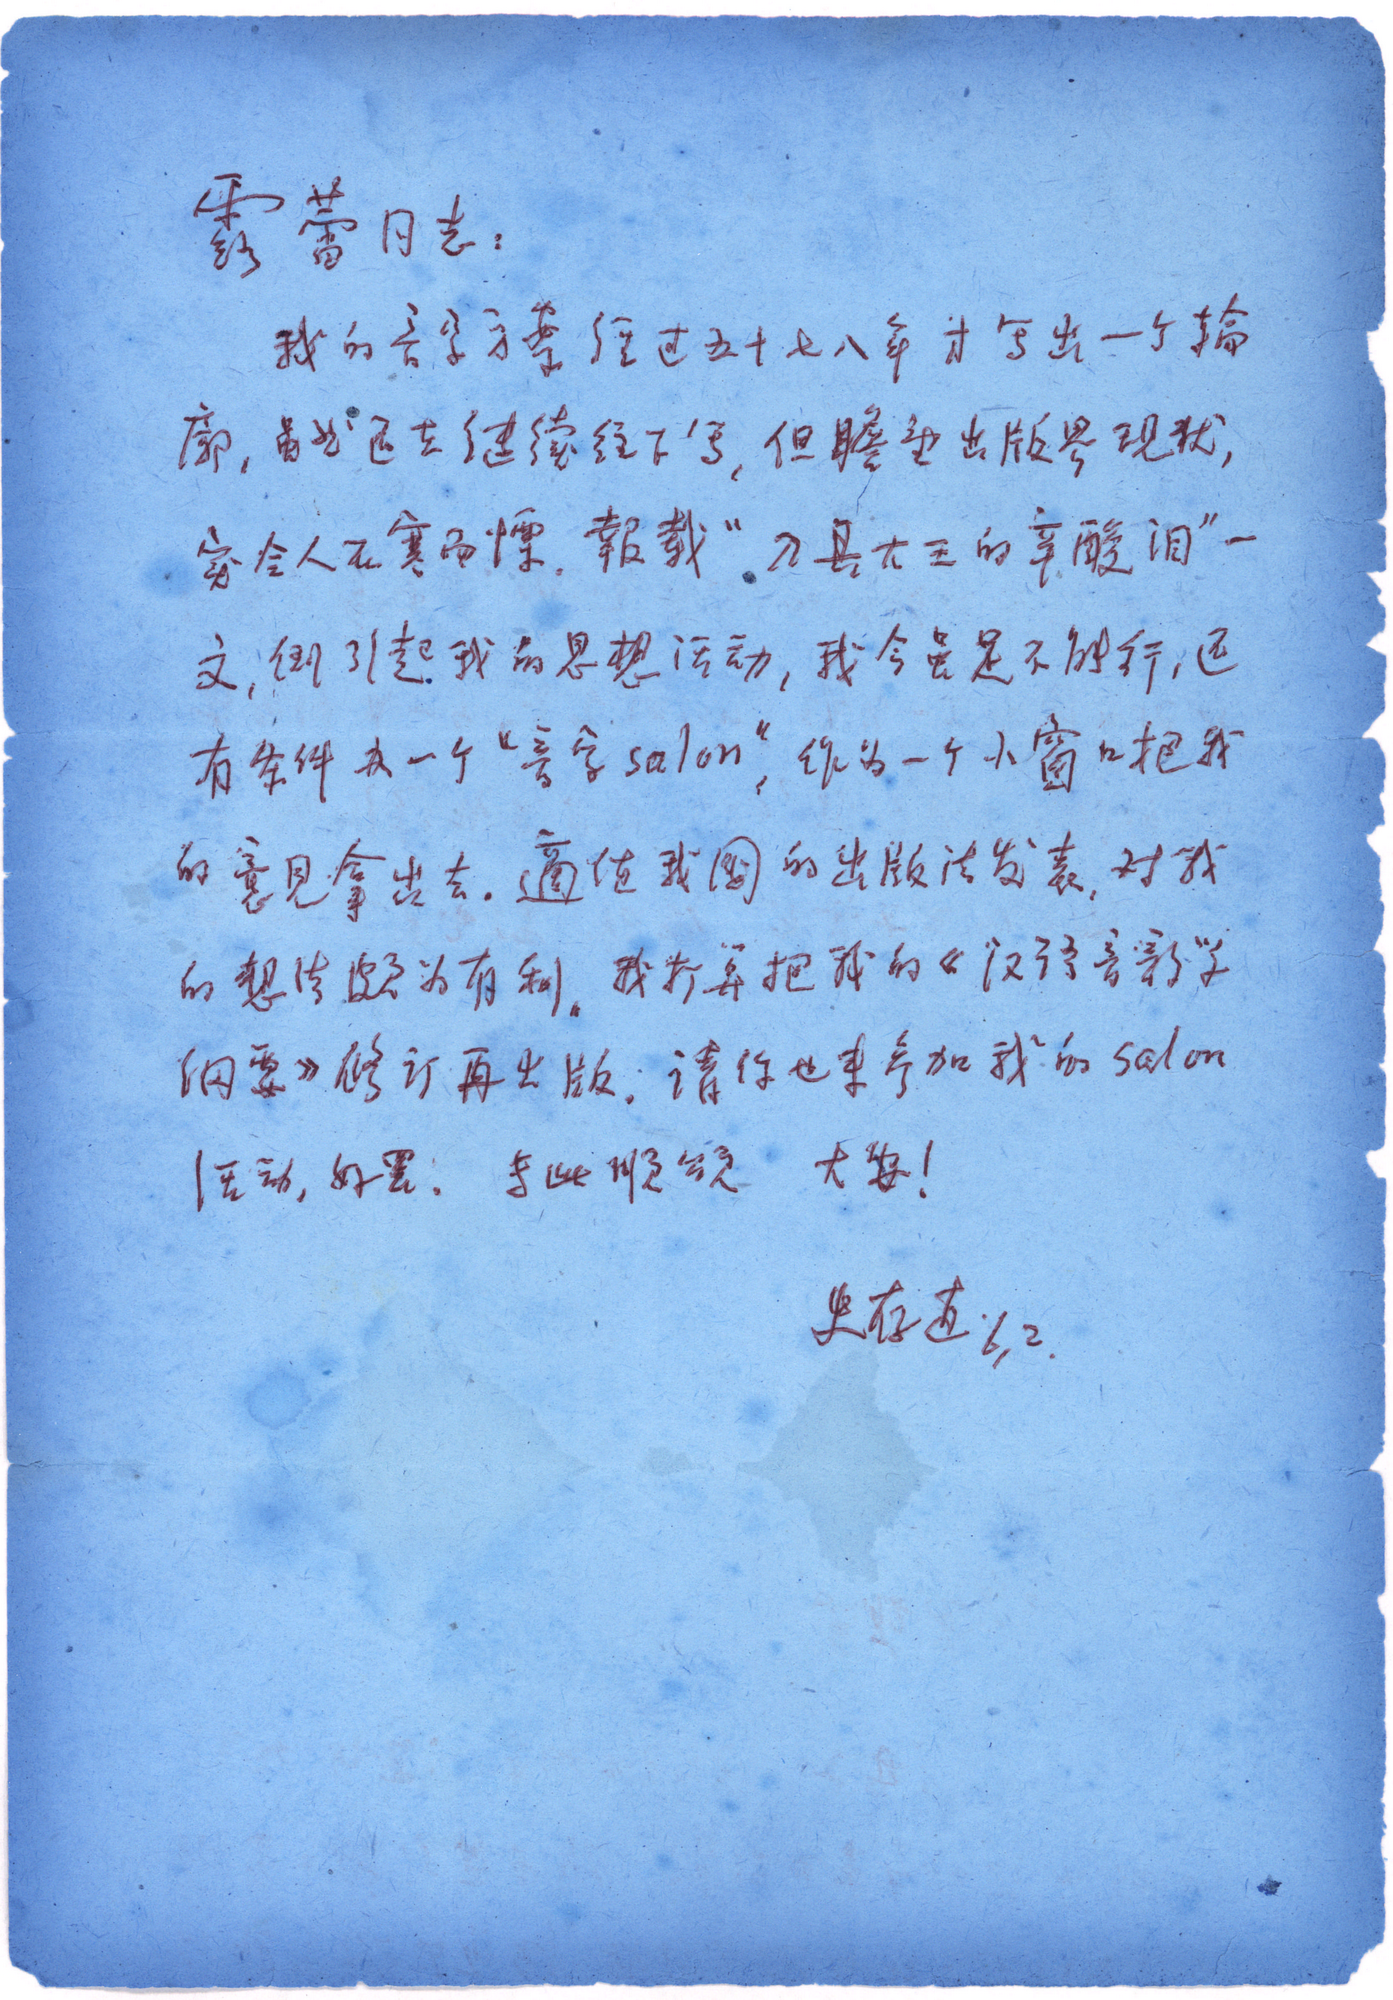 露蕾同志：
我的音字方案经过五十七八年才写出一个轮
廓，虽然还在继续往下写，但瞻望出版界现状，
实令人不寒而慄．報載“刀具大王的辛酸泪”一
文，倒引起我的思想活动，我今虽足不能行，还
有条件办一个“音字salon”，作为一个小窗口把我
的意见拿出去．適值我国的出版法发表，对我
的想法颇为有利。我打算把我的《汉语音韵学
纲要》修订再出版．请你也来参加我的salon
活动，好罢． 专此顺颂 大安！
史存直 6,2.